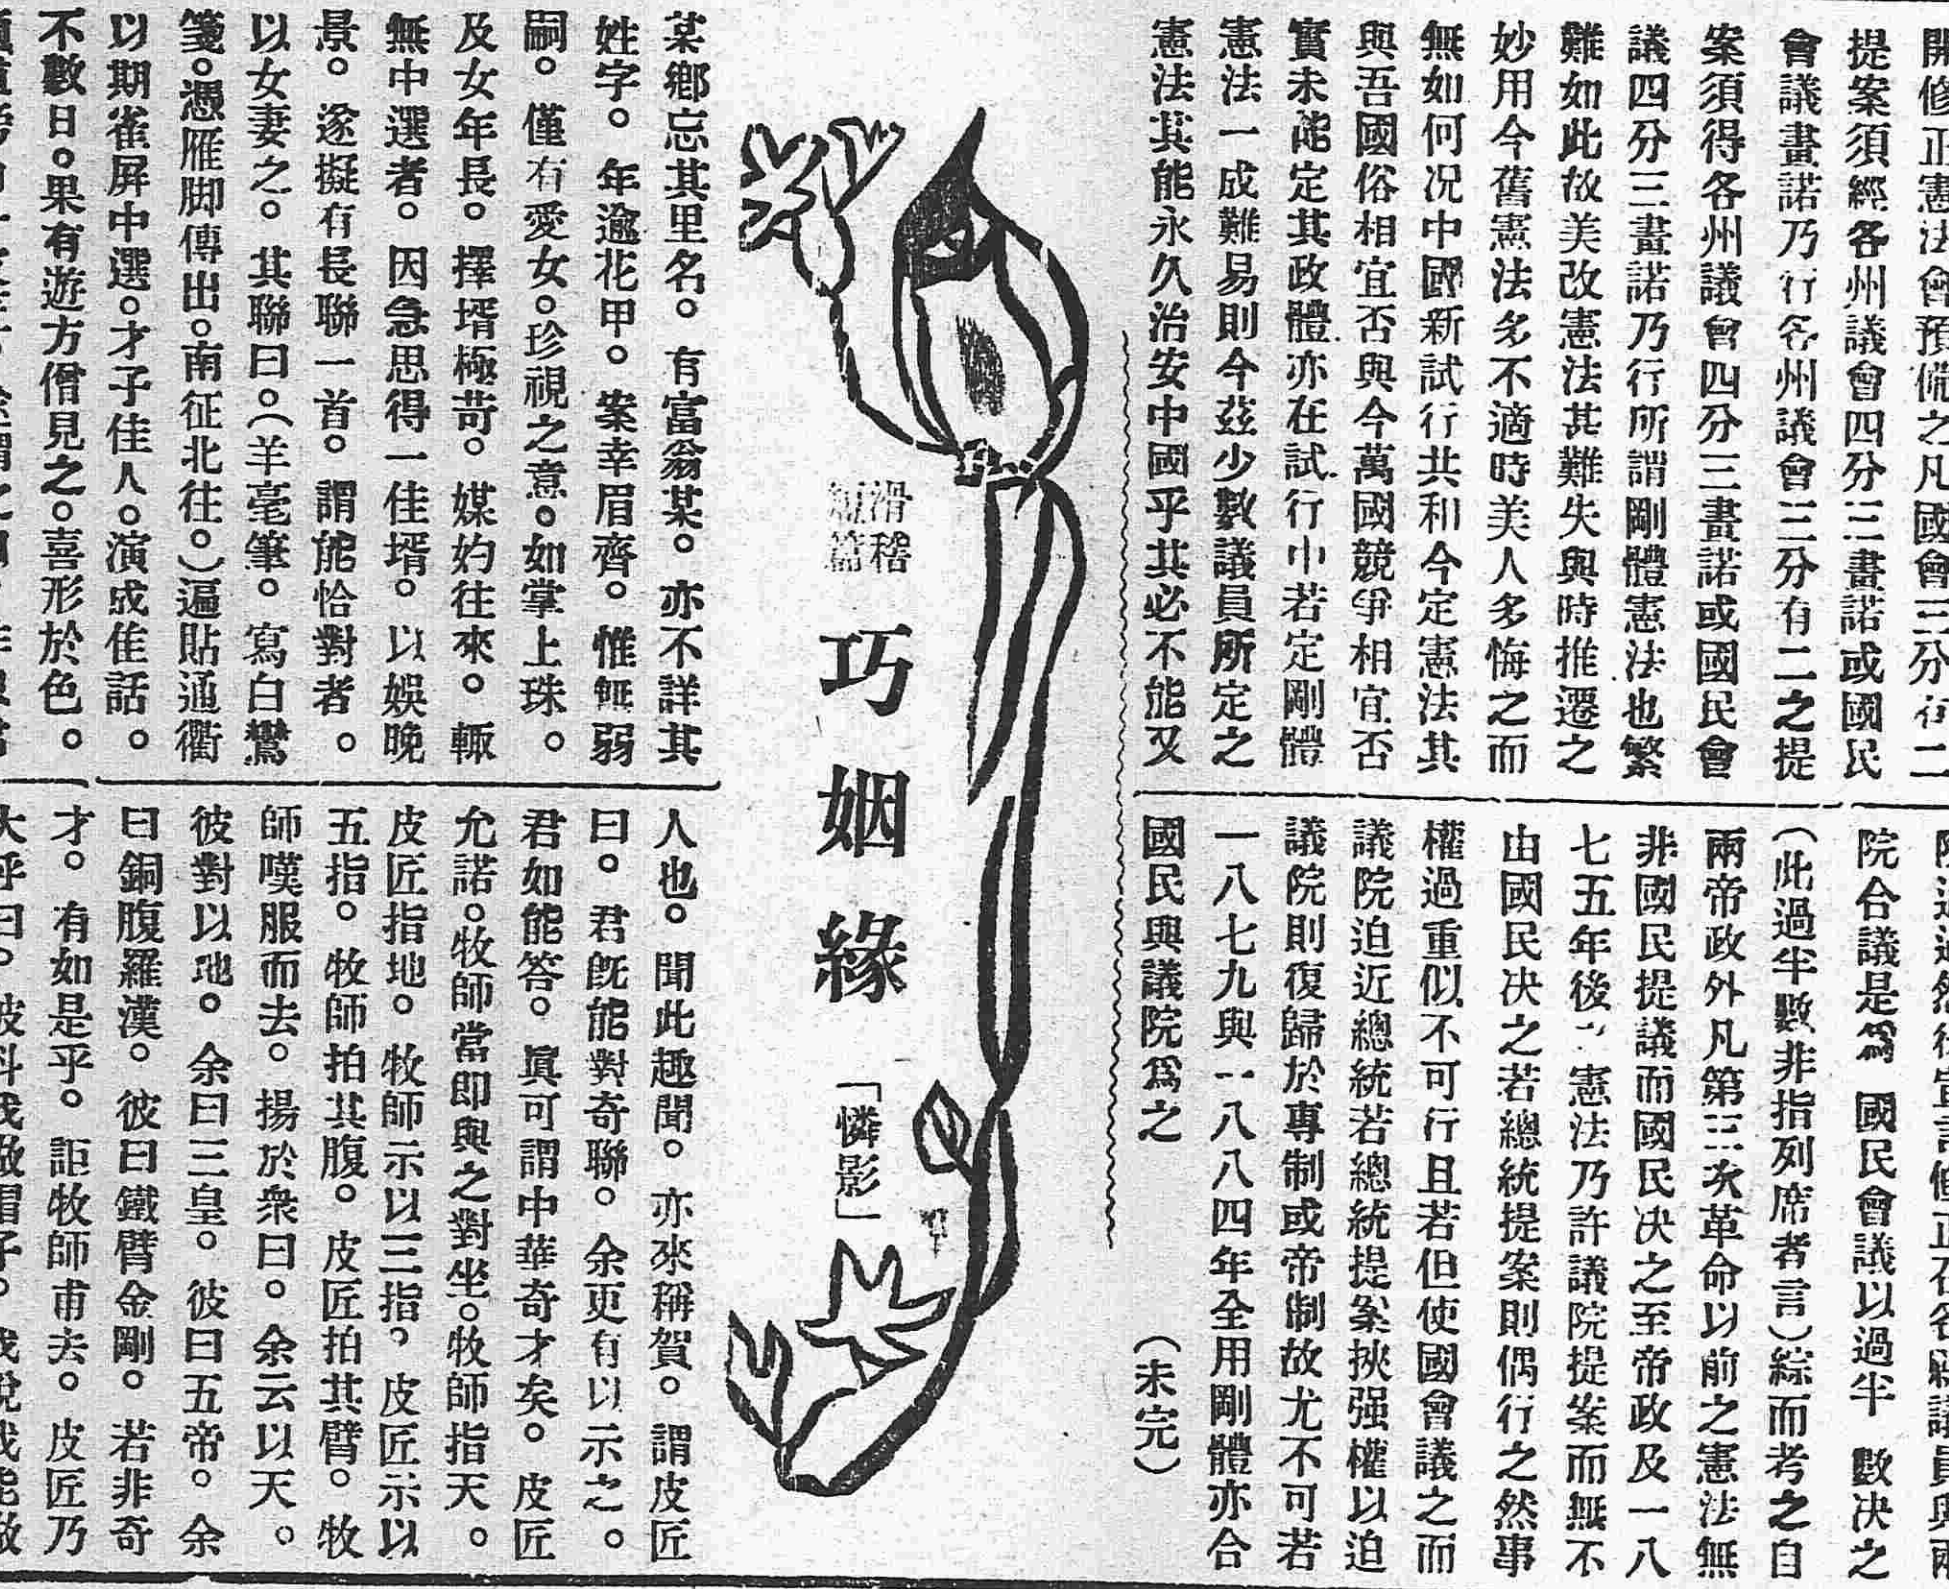 開修正憲法會預備之凡國會三分有二
提案須經各州議會四分三畫諾或國民
會議畫諾乃行各州議會三分有二之提
案須得各州議會四分三畫諾或國民會
議四分三畫諾乃行所謂剛體憲法也繁
難如此故美改憲法甚難失與時推遷之
妙用今舊憲法多不適時美人多悔之而
無如何况中國新試行共和今定憲法其
與吾國俗相宜否與今萬國競爭相宜否
實未能定其政體亦在試行中若定剛體
憲法一成難易則今茲少數議員所定之
憲法其能永久治安中國乎其必不能又
院合議是爲 國民會議以過半 數决之
(此過半數非指列席者言)綜而考之自
兩帝政外凡第三次革命以前之憲法無
非國民提議而國民决之至帝政及一八
七五年後之憲法乃許議院提案而無不
由國民决之若總統提案則偶行之然事
權過重似不可行且若但使國會議之而
議院迫近總統若總統提案挾强權以迫
議院則復歸於專制或帝制故尤不可若
一八七九與一八八四年全用剛體亦合
國民與議院爲之 (未完)
滑稽
短篇
巧姻緣
「憐影」
某鄉忘其里名。有富翁某。亦不詳其
姓字。年逾花甲。案幸眉齊。惟無弱
嗣。僅有愛女。珍視之意。如掌上珠。
及女年長。擇壻極苛。媒妁往來。輙
無中選者。因急思得一佳壻。以娛晚
景。遂擬有長聯一首。謂能恰對者。
以女妻之。其聯曰。(羊毫筆。寫白鸞
箋。憑雁脚傳出。南征北往。)遍貼通衢
以期雀屏中選。才子佳人。演成佳話。
不數日。果有遊方僧見之。喜形於色。
人也。聞此趣聞。亦來稱賀。謂皮匠
曰。君旣能對奇聯。余更有以示之。
君如能答。眞可謂中華奇才矣。皮匠
允諾。牧師當即與之對坐。牧師指天。
皮匠指地。牧師示以三指。皮匠示以
五指。牧師拍其腹。皮匠拍其臂。牧
師嘆服而去。揚於衆曰。余云以天。
彼對以地。余曰三皇。彼曰五帝。余
曰銅腹羅漢。彼曰鐵臂金剛。若非奇
才。有如是乎。詎牧師甫去。皮匠乃